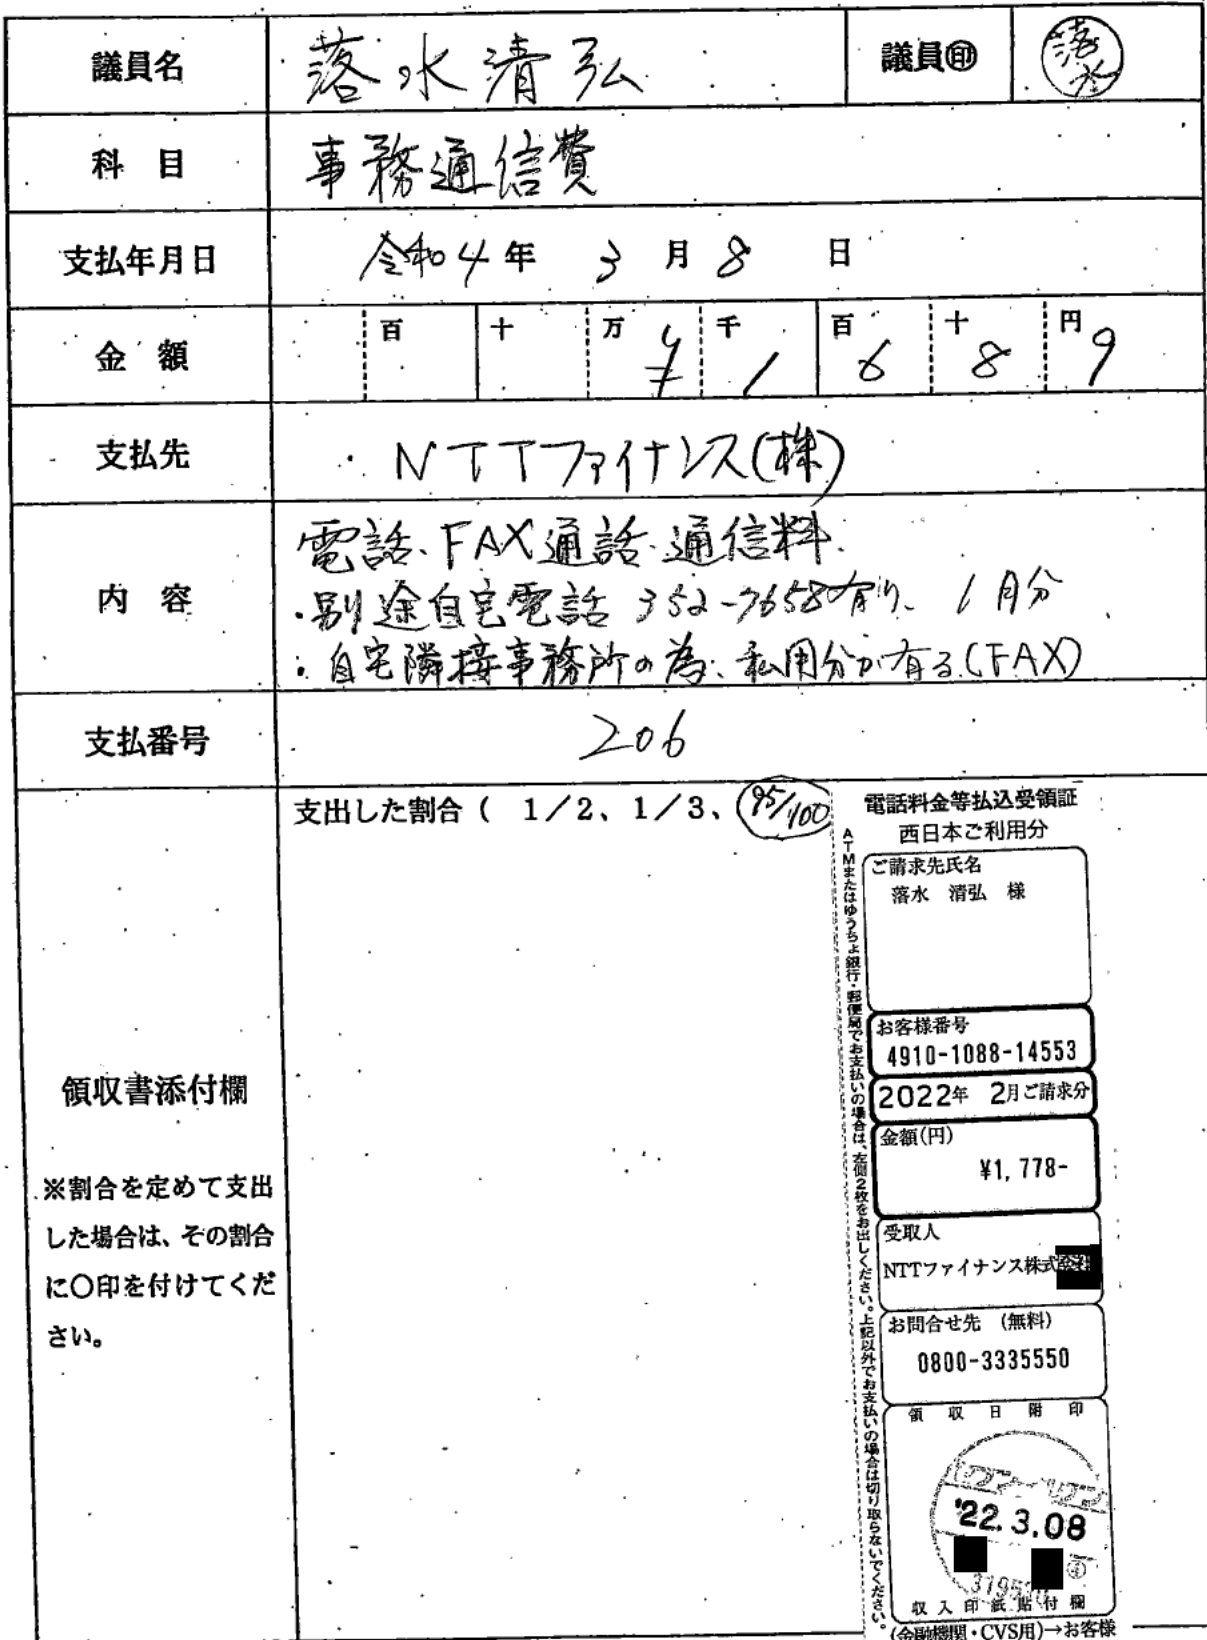 議員名 落水清弘 議員㊞ 落水
科目 事務通信費
支払年月日 令和4年 3月8日
金額 百 十 万 ¥ 千 1 百 6 十 8 円 9
支払先 NTTファイナンス(株)
内容 電話、FAX通話・通信料
・別途自宅電話 352-7658有り、1月分
・自宅隣接事務所の為、私用分が有る(FAX)
支払番号 206
領収書添付欄
※割合を定めて支出
した場合は、その割合
に○印を付けてくだ
さい。
支出した割合( 1/2、1/3、95/100
ATMまたはゆうちょ銀行・郵便局でお支払いの場合は、左側2枚をお出しください。上記以外でお支払いの場合は切り取らないでください。
電話料金等払込受領証
西日本ご利用分
ご請求先氏名
落水 清弘 様
お客様番号
4910-1088-14553
2022年 2月ご請求分
金額(円)
¥1,778-
受取人
NTTファイナンス株式会社
お問合せ先 (無料)
0800-3335550
領収日附印
セブン-イレブン
'22.3.08
収入印紙貼付欄
(金融機関・CVS用)→お客様